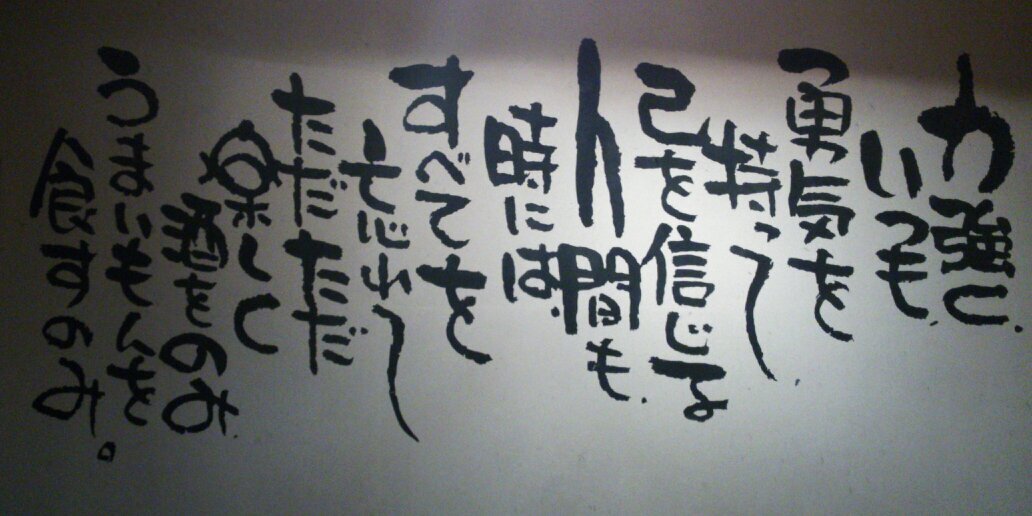 力強く、
いつも、
勇気を
持って、
己を信じる
人間も、
時には、
すべてを
忘れて
ただただ
楽しく
酒をのみ、
うまいもんを
食すのみ。